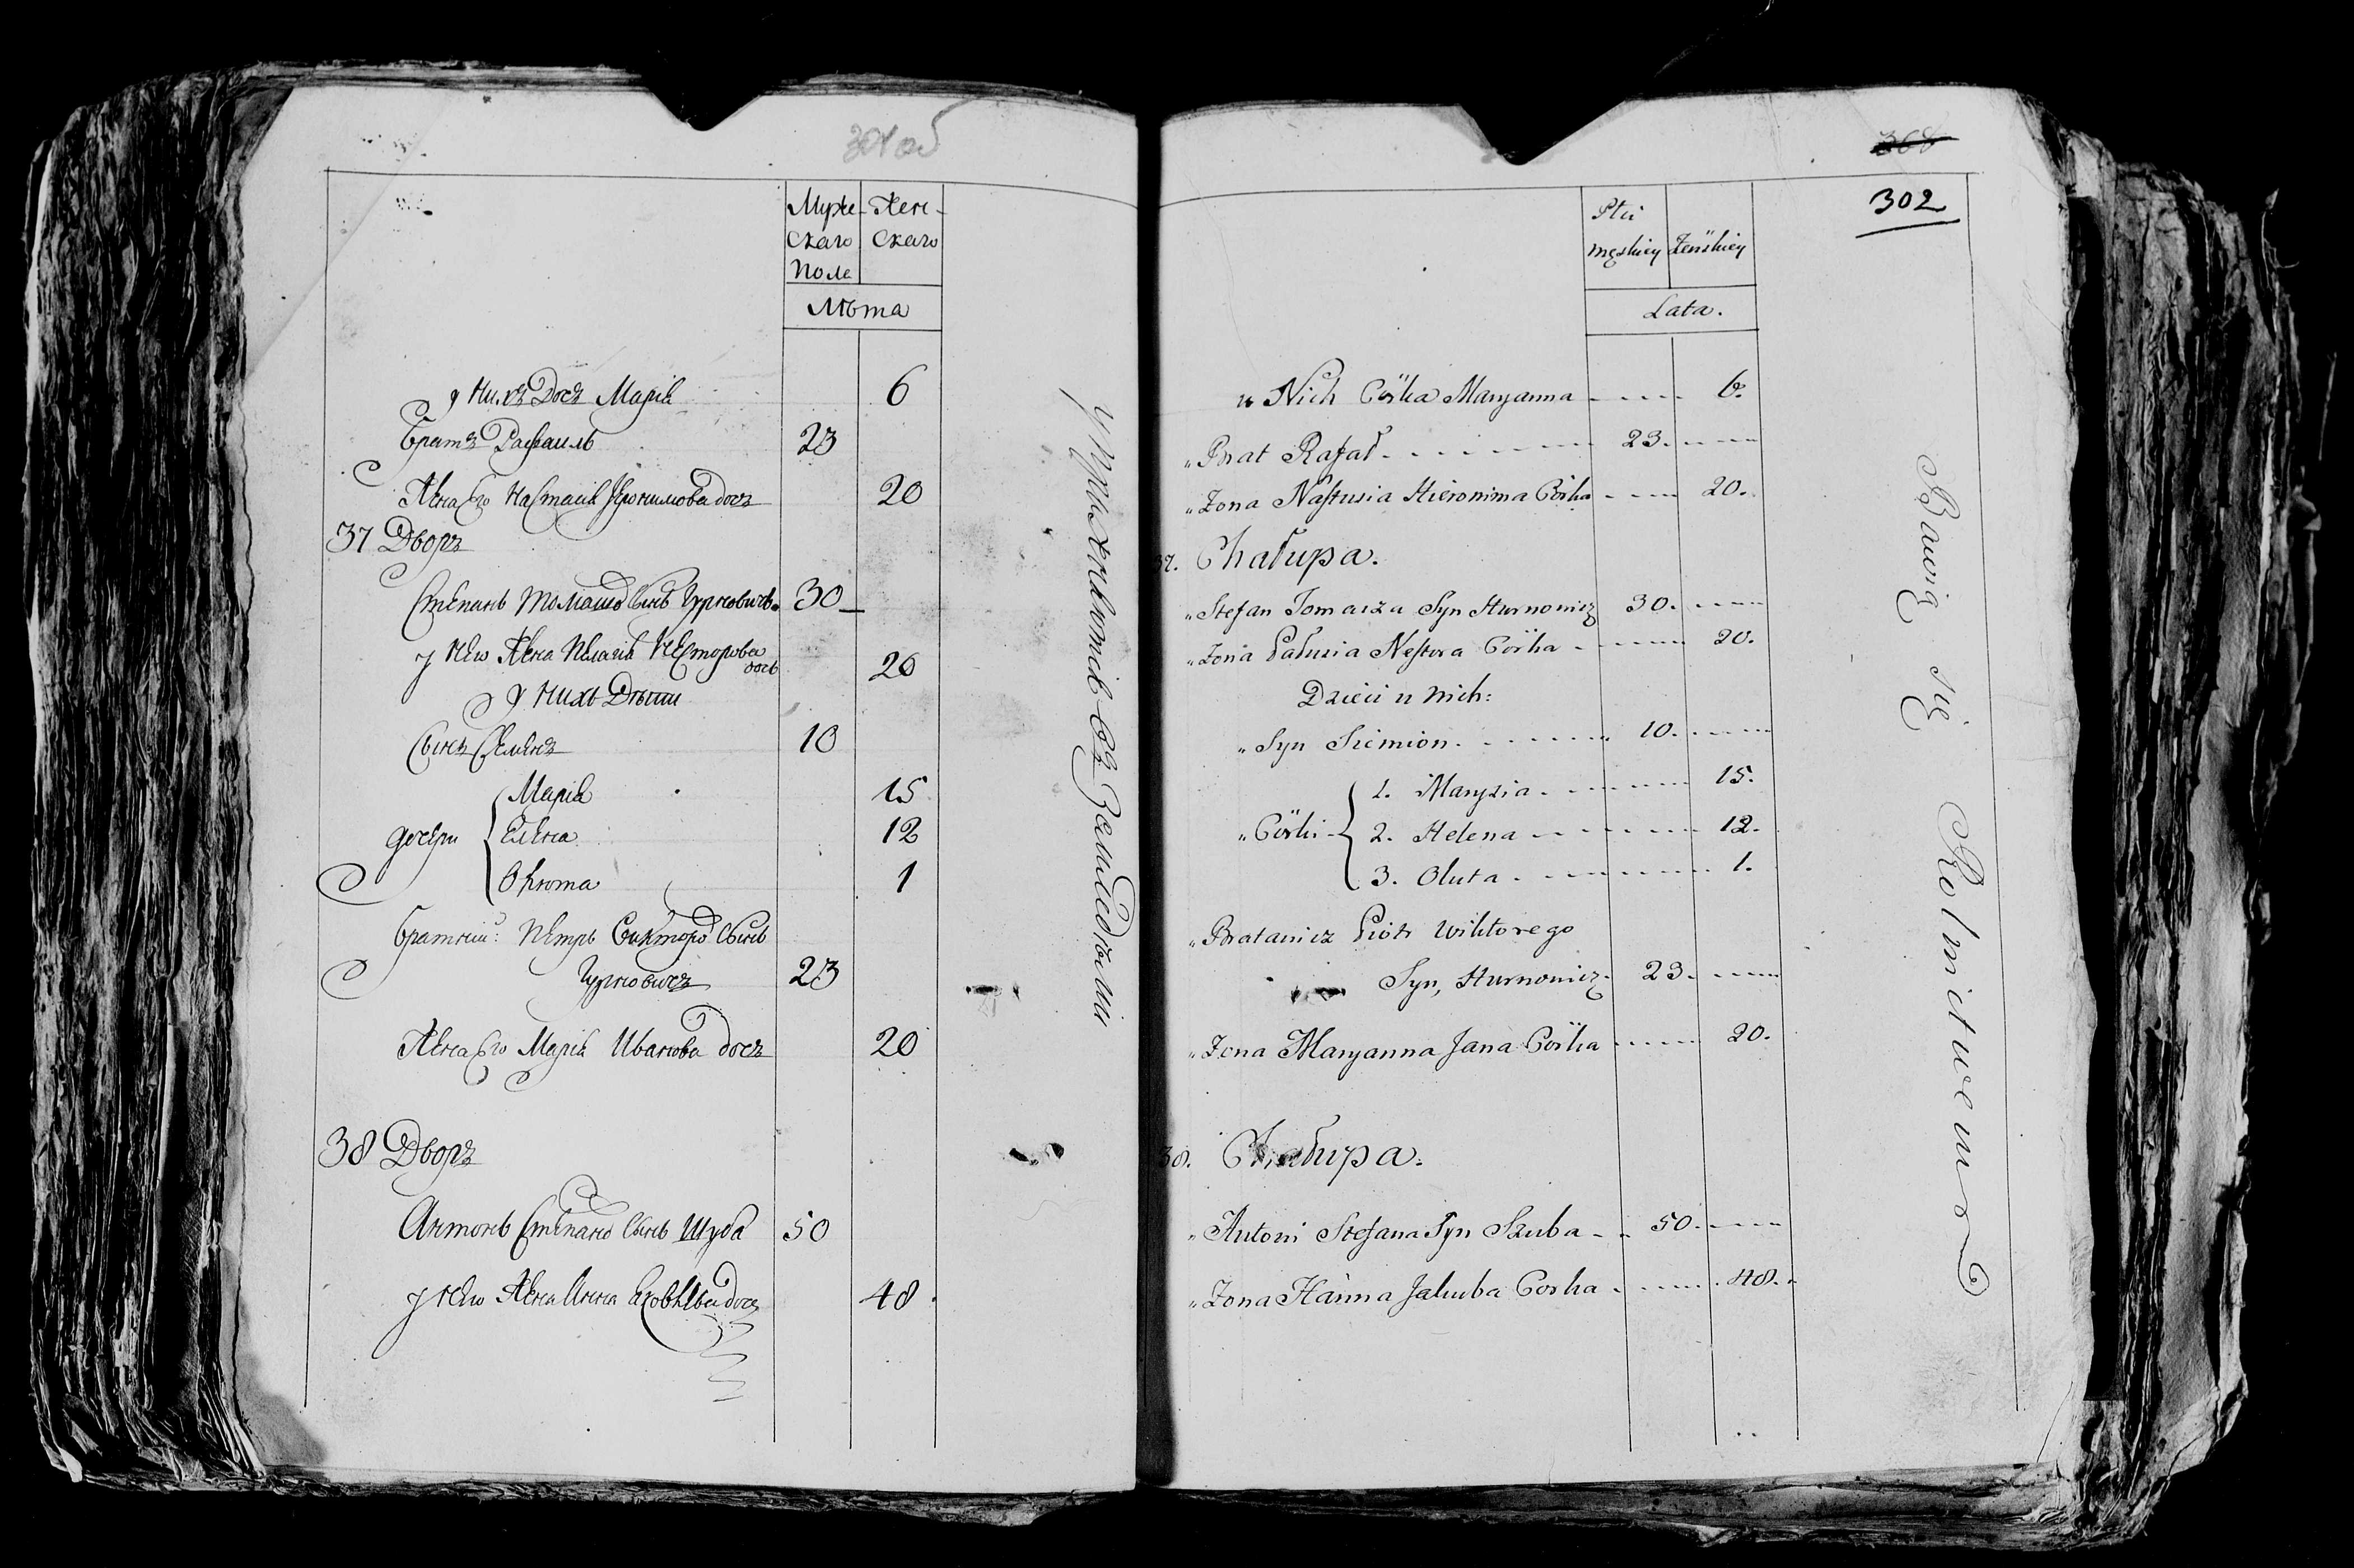 301 об
Муже- Жен-
скаго скаго
пола
Лѣта
у нихъ дочь Марія 6
братъ Рафаилъ 23
Жена его Настасія Іеронимова дочь 20
37 Дворъ
Степанъ Томашовъ сынъ Гурновичъ 30
у него жена Пелагія Несторова 20
дочь
у нихъ дѣти
сынъ Семенъ 10
Марія 15
дочери Елена 12
Окюта 1
братнии: Петръ Викторовъ сынъ
Гурновичъ 23
Жена его Марія Иванова дочь 20
38 Дворъ
Антонъ Степановъ сынъ Шуба 50
у него жена Анна Яковлева дочь 48
Упражняются въ Земледѣліи
368
302
Płci
męskiey Żeńskiey
Lata.
u Nich Córka Maryanna - - - - 6.
„ Brat Rafał - - - - - - 23. - - - -
„ Żona Nastusia Hieronima Córka - - - - 20.
37. Chałupa.
„ Stefan Tomasza Syn Hurnowicz 30. - - - -
„ Żona Pałusia Nestora Córka - - - - - 20.
Dzieci u nich:
„ Syn Siemion. - - - - - - 10. - - - -
1. Marysia - - - - - - 15.
„ Córki - 2. Helena - - - - - - 12.
3. Oluta - - - - - - 1.
„ Bratanicz Piotr Wiktorego
Syn, Hurnowicz. 23. - - - -
„ Żona Maryanna Jana Córka - - - - 20.
38. Chałupa.
„ Antoni Stefana Syn Szuba - - 50. - - - -
„ Żona Hanna Jakuba Corka - - - - 48.
Bawią się Rolnictwem